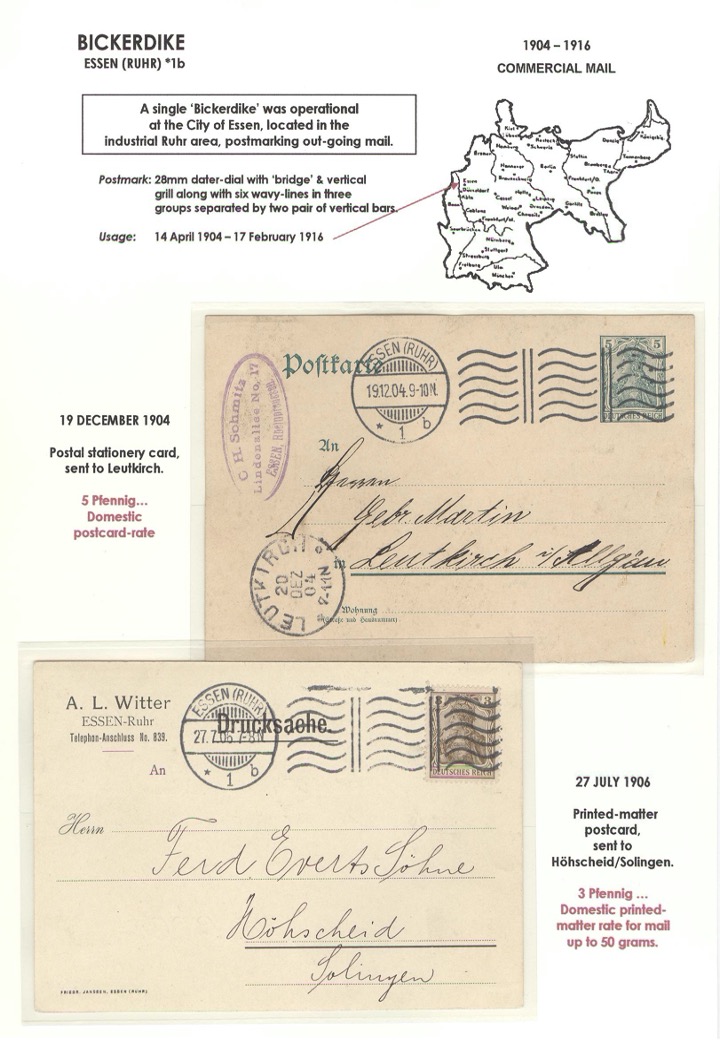 BICKERDIKE
ESSEN (RUHR) *1b
1904 – 1916
COMMERCIAL MAIL
A single ‘Bickerdike’ was operational
at the City of Essen, located in the
industrial Ruhr area, postmarking out-going mail.
Postmark: 28mm dater-dial with ‘bridge’ & vertical
grill along with six wavy-lines in three
groups separated by two pair of vertical bars.
Usage: 14 April 1904 – 17 February 1916
Kiel
Rostock
Schwerin
Hamburg
Bremen
Stettin
Danzig
Königsbg
Bromberg
Thorn
Hannover
Berlin
Braunschweig
Frankfurt/O.
Posen
Essen
Düsseldorf
Köln
Bonn
Cassel
Halle
Leipzig
Weimar
Dresden
Chemnitz
Görlitz
Breslau
Coblenz
Frankfurt/M.
Saarbrücken
Nürnberg
Stuttgart
Strassburg
Freiburg
Ulm
München
19 DECEMBER 1904
Postal stationery card,
sent to Leutkirch.
5 Pfennig...
Domestic
postcard-rate
C. H. Schmitz
Lindenallee No. 17
ESSEN,
Postkarte
ESSEN (RUHR)
19.12.04.9-10N.
* 1 b
5 5
DEUTSCHES REICH
An
Herren
Gebr. Martin
in Leutkirch i/Allgäu
Wohnung
(Straße und Hausnummer)
LEUTKIRCH
20
DEZ
04
A. L. Witter
ESSEN-Ruhr
Telephon-Anschluss No. 839.
An
ESSEN (RUHR)
27.7.06.7-8N
* 1 b
Drucksache.
3 3
DEUTSCHES REICH
Herrn
Ferd Everts Söhne
Höhscheid
Solingen
FRIEDR. JANSSEN, ESSEN (RUHR)
27 JULY 1906
Printed-matter
postcard,
sent to
Höhscheid/Solingen.
3 Pfennig ...
Domestic printed-
matter rate for mail
up to 50 grams.